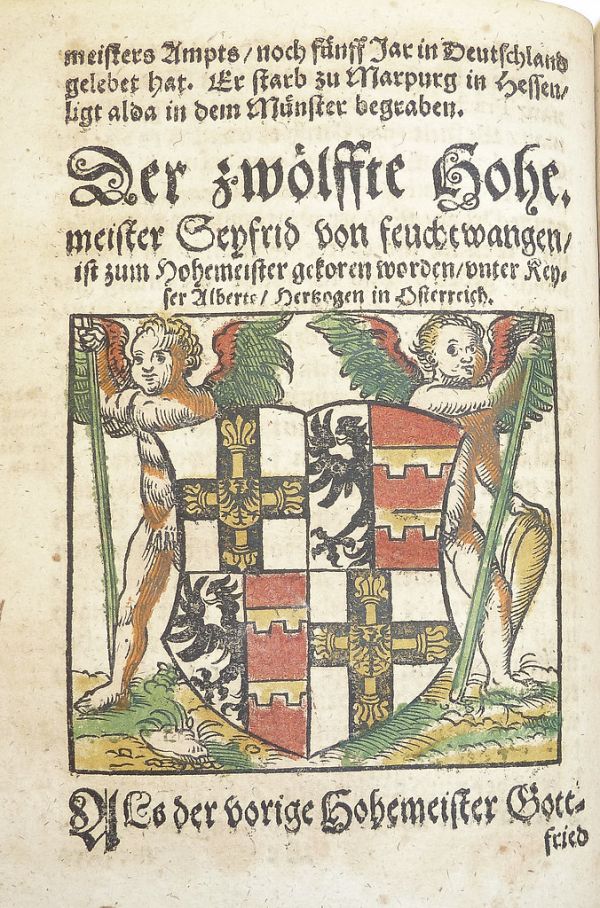 meisters Ampts/ noch fünff Jar in Deutschland
gelebet hat. Er starb zu Marpurg in Hessen/
ligt alda in dem Münster begraben.
Der zwölffte Hohe,
meister Seyfrid von feuchtwangen/
ist zum Hohemeister gekoren worden/ vnter Key-
ser Alberto/ Hertzogen in Osterreich.
Als der vorige Hohemeister Gott-
fried